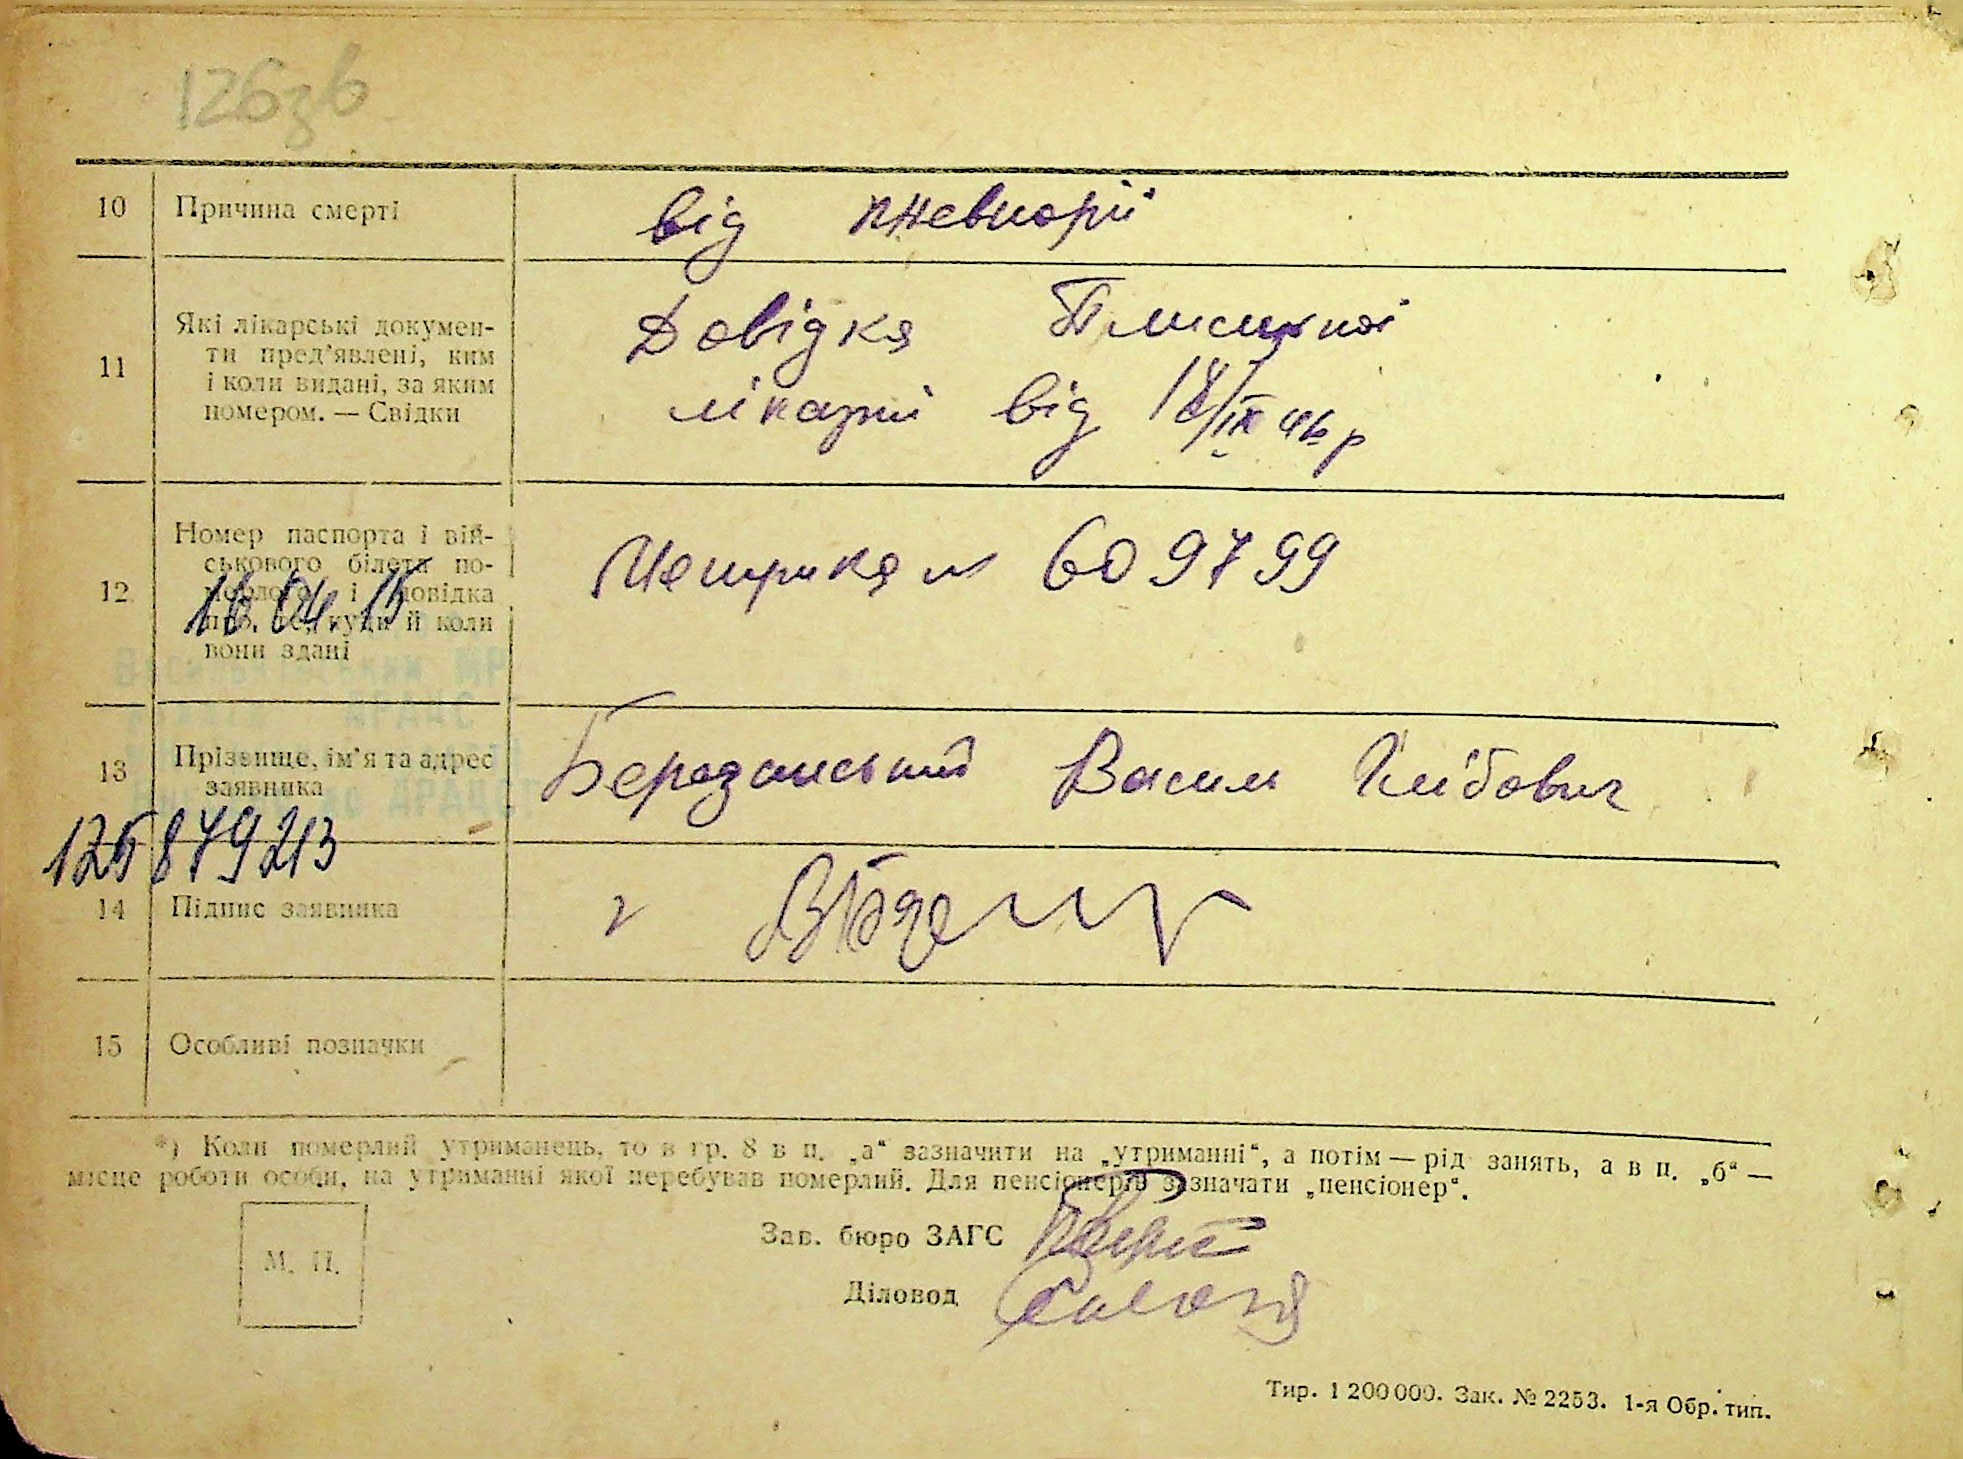 126зв
10 Причина смерті
від пневморії
11 Які лікарські докумен-
ти пред'явлені, ким
і коли видані, за яким
номером. — Свідки
Довідка
лікарні від 18/IX 46 р
12 Номер паспорта і вій-
ськового білета по-
мерлого і довідка
про те, куди й коли
вони здані
Метрика № 609799
16.04.15
13 Прізвище, ім'я та адрес
заявника
Березанський Василь Глібович
125879213
14 Підпис заявника
15 Особливі позначки
*) Коли померлий утриманець, то в гр. 8 в п. „а“ зазначити на „утриманні“, а потім — рід занять, а в п. „б“ —
місце роботи особи, на утриманні якої перебував померлий. Для пенсіонерів зазначати „пенсіонер“.
М. П.
Зав. бюро ЗАГС
Діловод
Тир. 1 200 000. Зак. № 2253. 1-я Обр. тип.